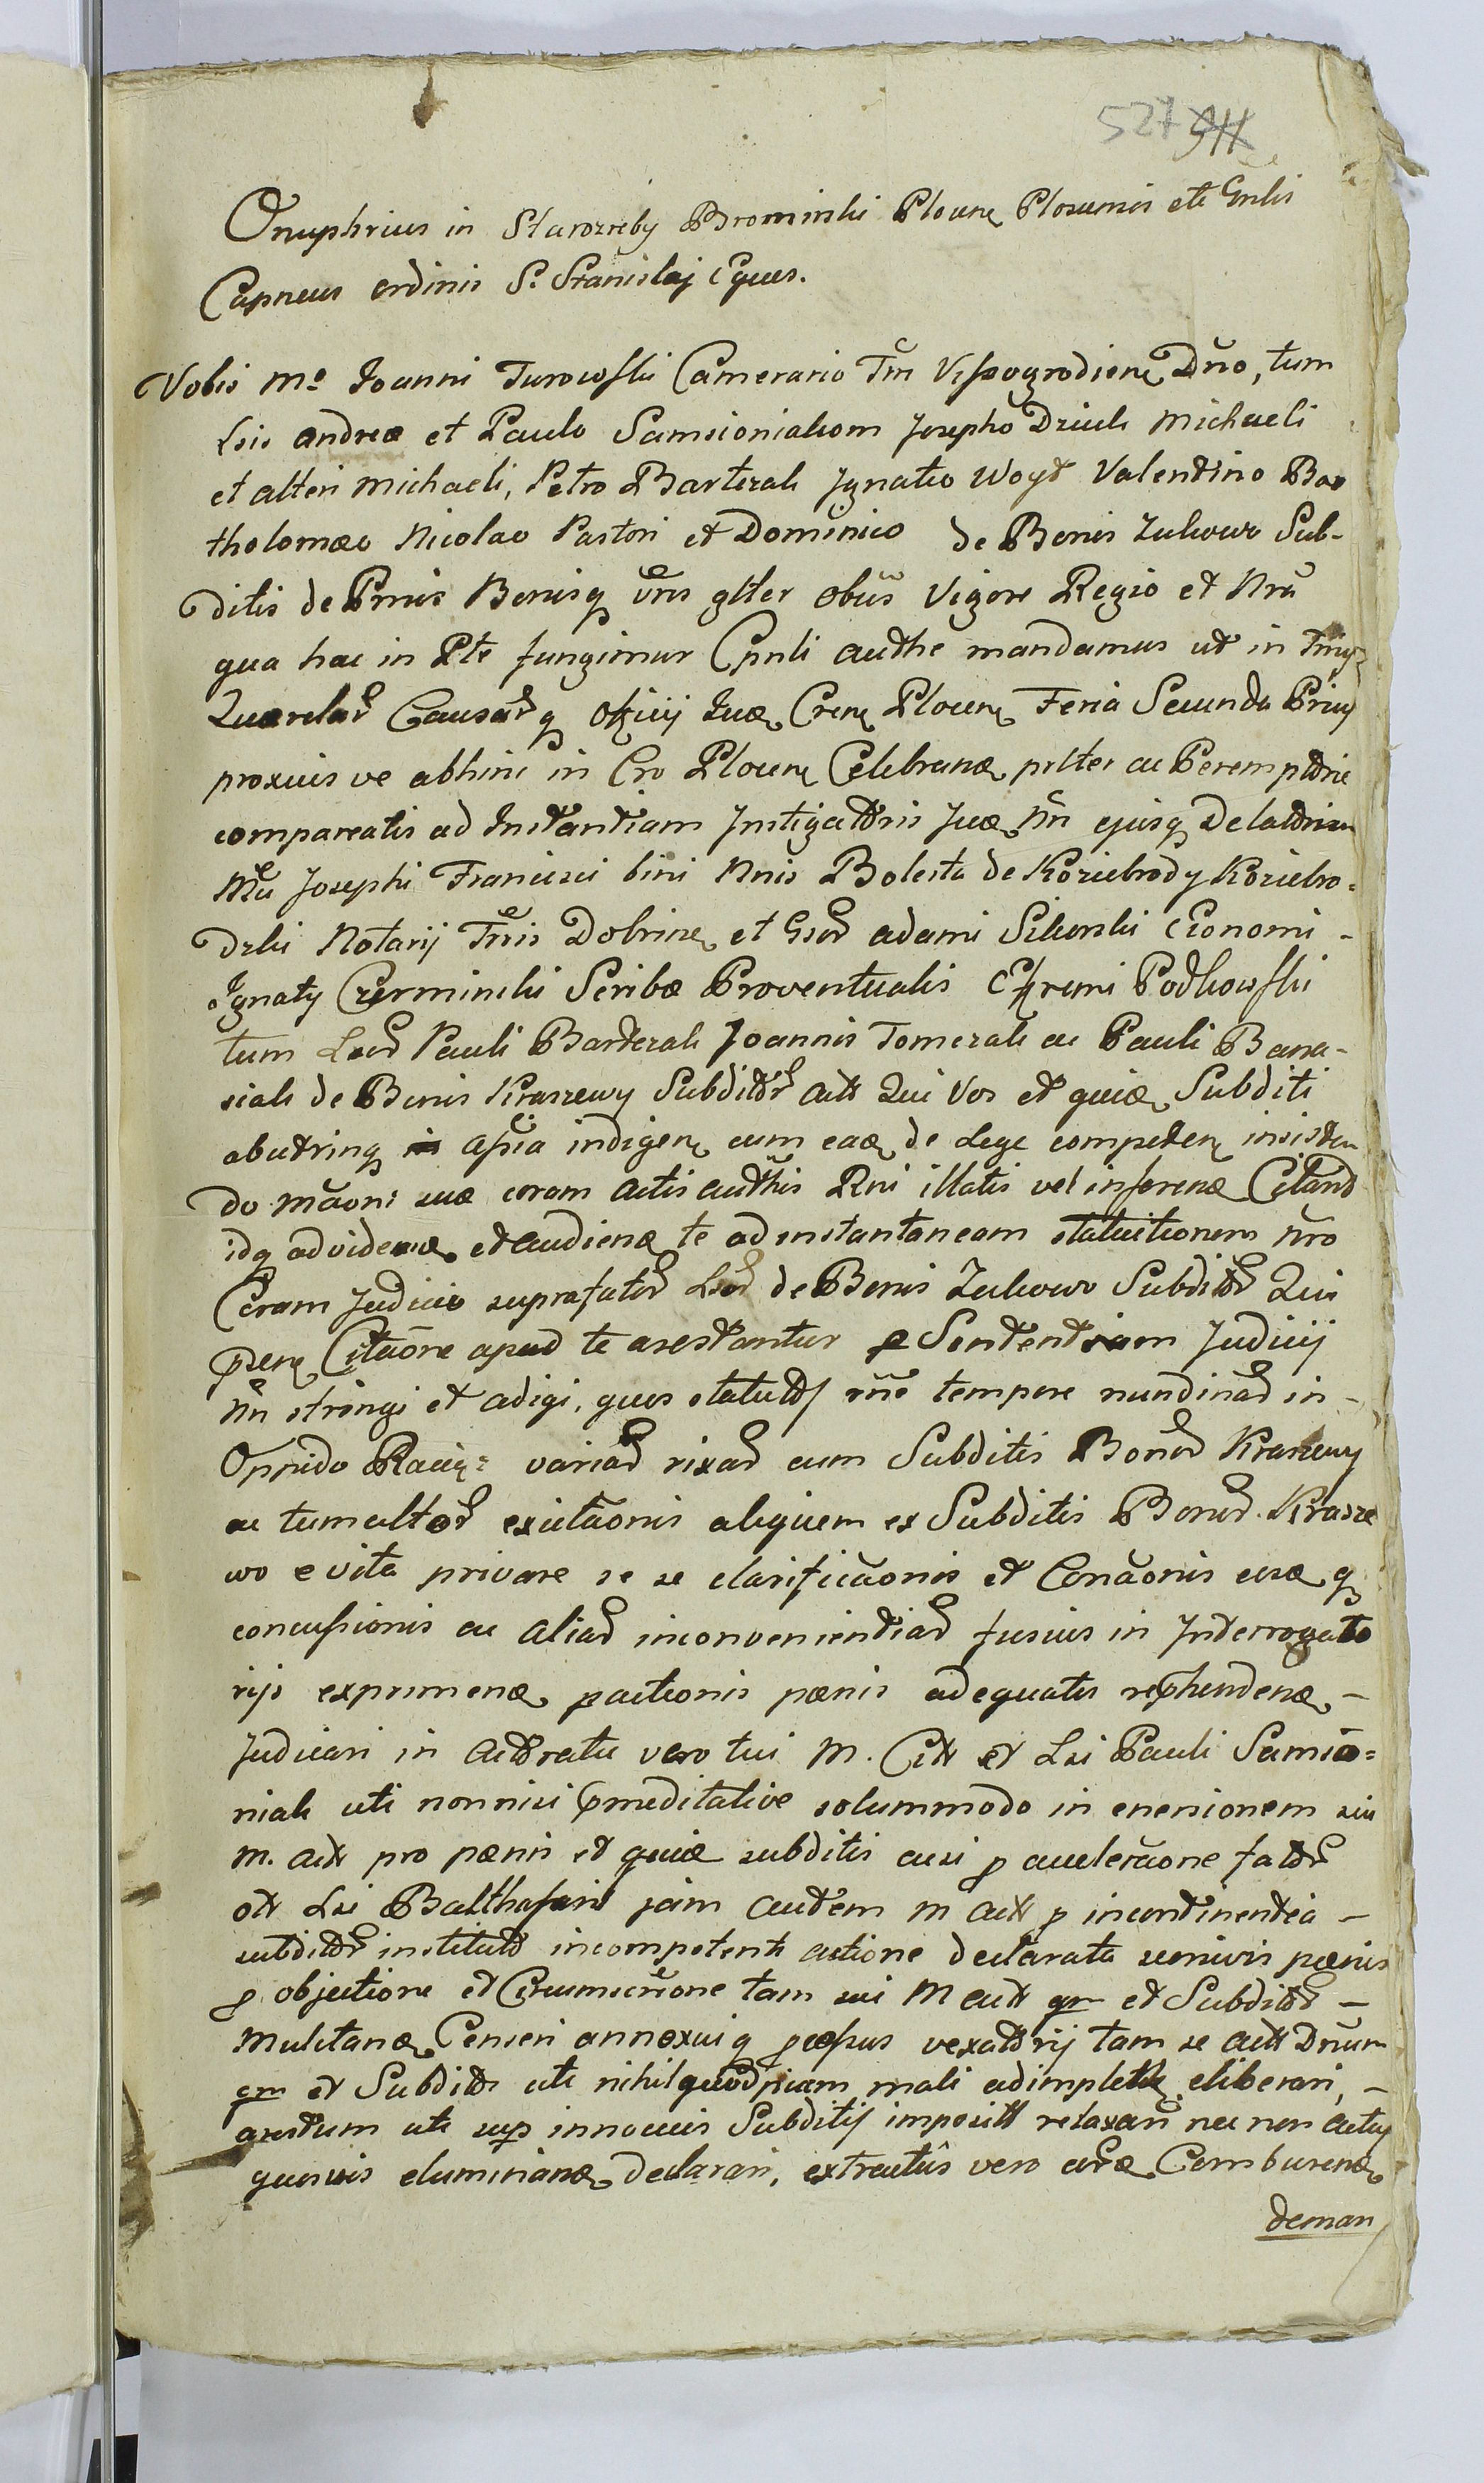 527 511
Onuphrius in Starozreby Brominski Plocen Plocensis et Gnlis
Capneus ordinis S. Stanislaj Eques.
Vobis Mco Joanni Turowski Camerario Trn Vissogrodien Dno, tum
Lsis Andreæ et Paulo Samsioniakom Josepho Dziuk Michaeli
et alteri Michaeli, Petro Barterak Jgnatio Woyt Valentino Bar
tholomæo Nicolao Pastori et Dominico de Bonis Zukowo Sub-
ditis de Prnis Bonisq vris glter obus Vigore Regio et Nra
qua hac in Pte fungimur Cpnli authe mandamus ut in
Querelar Causarq Officij Juæ Cren Plocen Feria Secunda
proxuis ve abhinc in Cro Plocen Celebranæ prlter ac Peremptorie
compareatis ad Instantiam Jnstigatoris Juæ Nri ejusq Delatorum
Mci Josephi Francisci bini Nnis Bolesta de Koziebrody Koziebro=
dzki Notarij Trris Dobrinen et Gsor Adami Sikorski Economi -
Jgnaty Czerminski Scribæ Proventualis Efremi Podkowski
tum Lsor Pauli Barterak Joannis Tomczak ac Pauli Bana-
siak de Bonis Kraszewy Subditor Actt Qui Vos et quiæ Subditi
abutrinq assia indigen cum eaæ de Lege competen insisten
do maoni suæ coram Actis authis Rni illatis vel inferenæ Citand
idq ad videnæ et audienæ te ad instantaneam statuitionem nro
Coram Judicio suprafator Lsor de Bonis Zukowo Subditor Qui
psen Citaone apud te arestantur p Sententiam Judicij
Nri stringi et adigi, quos statutos rne tempore nundinar in -
Oppido Raciąz variar rixar cum Subditis Bonor Kraszewy
ac tumultor exitaonis aliquem ex Subditis Bonor Krasze
wo e vita privare se se clarificaonis et Conaonis eisæ q
concussionis ac aliar inconvenientiar fusius in Jnterrogato
rijs exprimenæ pactionis pœnis adequatis rephendenæ -
Judicari in Actoratu vero tui M. Citt et Lsi Pauli Samsio=
niak uti nonnisi præmeditative solummodo in enersionem sui
M. actt pro pœnis et quiæ subditis ausi p aceleraone fator
ott Lsi Balthasari jam autem M actt p incontinentia -
subditor instituto incompetenti actione declarata sconivis pœnis
p objectione et Circumscrione tam sui M actt qm et Subditor -
Mulctanæ Censeri annexuiq pcessus vexatorij tam se actt Dnum
qm et Subditos uti nihil quodpiam mali adimplett eliberari, -
arestum uti sup innocuis Subditis impositt relaxari nec non actus
quosvis eliminanæ declarari, extractus vero eoræ Comburenæ
deman